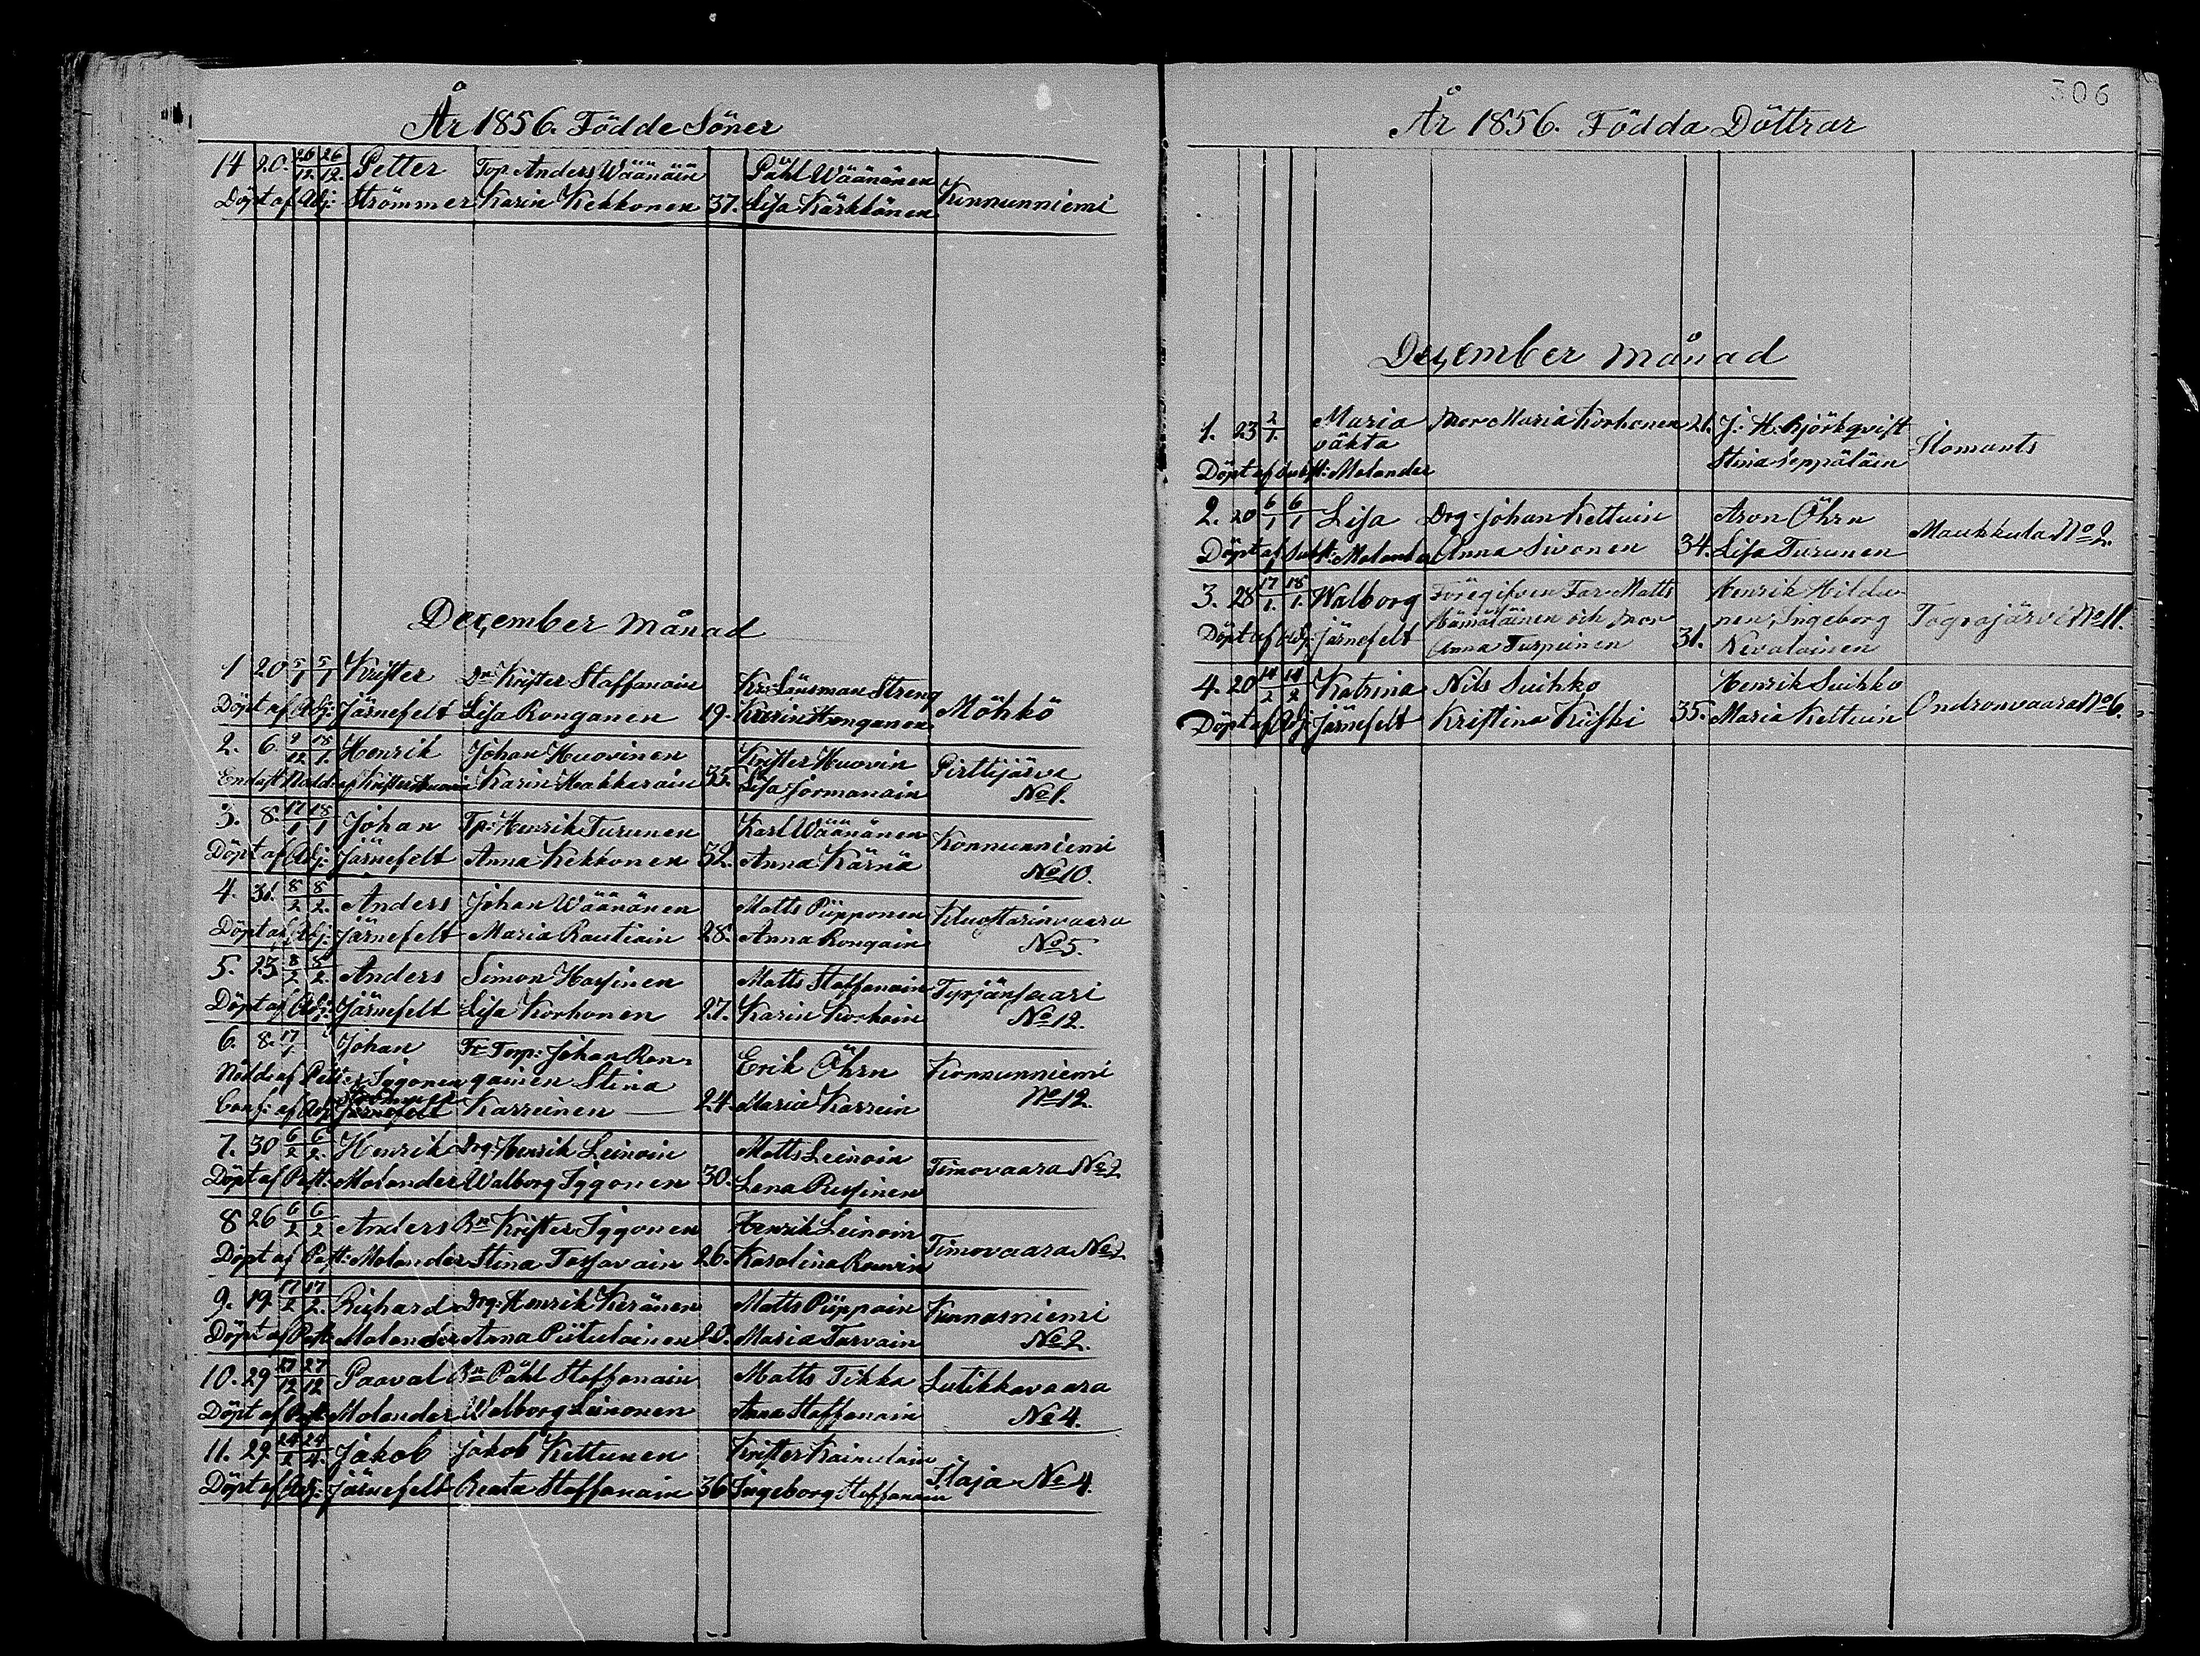 År 1856. Födde Söner
14 20. 26/12. 26/12. Petter Torp. Anders Wäänäin Påhl Wäänänen
Döpt af Adj: Strömmer Karin Kekkonen 37. Lisa Kärkkönen Konnunniemi
December Månad
1 20 5/1 5/1 Krister Dn Krister Staffanain Kr: Länsman Streng
Döpt af Adj: Järnefelt Lisa Ronganen 19. Karin Honganen Möhkö
2. 6. 9/12 18/1. Henrik Johan Huovinen Krister Huovin Pirttijärvi
Endast Nödd: af Krister Huovin Karin Makkarain 35. Lisa Jormanain No 1.
3. 8. 17/1 18/1 Johan Tp: Henrik Turunen Karl Wäänänen Konnunniemi
Döpt af Adj: Järnefelt Anna Kekkonen 32. Anna Kärnä No 10.
4. 31. 8/2 8/2. Anders Johan Wäänänen Matts Piipponen Kluostarinvaara
Döpt af Adj: Järnefelt Maria Rautiain 28. Anna Rongain No 5.
5. 23 8/2 8/2 Anders Simon Hassinen Matts Staffanain Tyrjänsaari
Döpt af Adj: Järnefelt Lisa Korhonen 27. Karin Korhoin No 12.
6. 8. 17/1 Johan Fr Torp: Johan Ron- Erik Öhrn Konnunniemi
Nödd: af Petter Iggonen gainen Stina
Conf: af Adj: Strömmer Järnefelt Karreinen — 24. Maria Karrein No 12.
7. 30 6/2 6/2. Henrik Drg: Henrik Leinoin Matts Leinoin Timovaara No 2
Döpt af Past: Molander Walborg Iggonen 30. Lena Russinen
8 26 6/2 6/2 Anders Bn Krister Iggonen Henrik Leinoin Timovaara No 2
Döpt af Past: Molander Stina Tossavain 26. Karolina
9. 19 17/2 17/2. Richard Drg: Henrik Keränen Matts Piippoin Kunnasniemi
Döpt af Past: Molander Anna Piitulainen 25. Maria Tarvain No 2.
10. 29 27/12 27/12 Paaval Bn Påhl Staffanain Matts Tikka Lutikkavaara
Döpt af Past: Molander Walborg Leinonen Anna Staffanain No 4.
11. 29 24/2 24/4. Jakob Jakob Kettunen Krister Kainulain
Döpt af Adj: Järnefelt Beata Staffanain 36 Ingeborg Staffanain Ilaja No 4.
306
År 1856. Födda Döttrar
December Månad
1. 23 2/1. Maria Mor Maria Korhonen 21. J: H: Björkqvist Ilomants
oäkta Stina Seppäläin
Döpt af Subst: Molander
2. 20 6/1 6/1 Lisa Drg: Johan Kettuin Aron Öhrn Maukkula No 2.
Döpt af Subst: Molander Anna Sivonen 34. Lisa Turunen
3. 28 17/1. 18/1. Walborg Föregifven Far Matts Henrik Hildu-
Hämäläinen och Mor nen, Ingeborg Tograjärvi No 11.
Döpt af Adj: Järnefelt Anna Turpeinen 31. Nevalainen
4. 20 14/2 14/2 Katrina Nils Suikko Henrik Suikko Ondronvaara No 6.
Döpt af Adj: Järnefelt Kristina Kiiski 35. Maria Kettuin